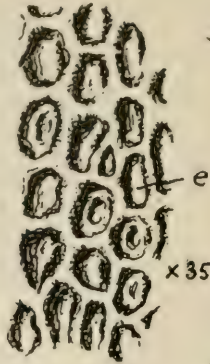 e
×35